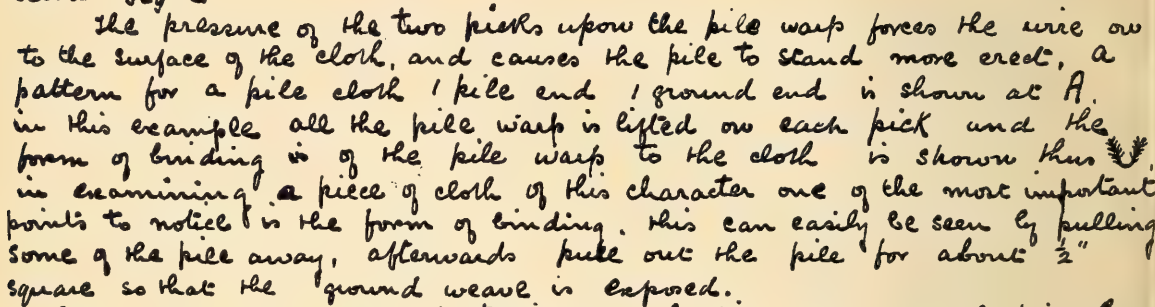 The pressure of the two picks upon the pile warp forces the wire on
to the surface of the cloth, and causes the pile to stand more erect, a
pattern for a pile cloth 1 pile end 1 ground end is shown at A.
in this example all the pile warp is lifted on each pick and the
form of binding is of the pile warp to the cloth is shown thus
in examining a piece of cloth of this character one of the most important
points to notice is the form of binding. this can easily be seen by pulling
some of the pile away, afterwards pull out the pile for about ½"
square so that the ground weave is exposed.